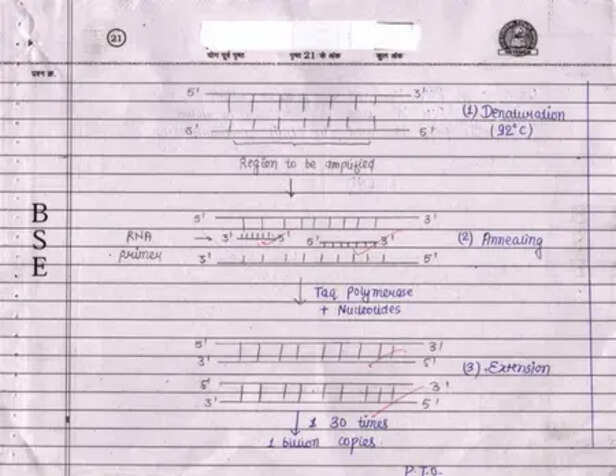 21
योग पूर्व पृष्ठ
पृष्ठ 21 के अंक
कुल अंक
प्रश्न क्र.
5' 3'
(1) Denaturation
(92°C)
3' 5'
Region to be amplified
B
S
E
5' 3'
RNA
primer
3' 5' 5' 3'
(2) Annealing
3' 5'
Taq Polymerase
+ Nucleotides
5' 3'
3' 5'
(3) Extension
5' 3'
3' 5'
30 times
1 billion copies
P.T.O.